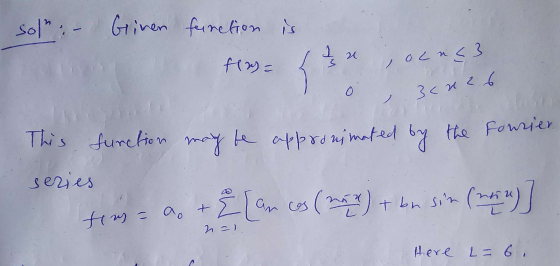 Solⁿ :- Given function is
f(x) = { 1/3 x , 0<x≤3
0 , 3<x<6
This function may be approximated by the Fourier
series
f(x) = a₀ + ∑_{n=1}^{∞} [aₙ cos (nπx/L) + bₙ sin (nπx/L)]
Here L = 6.